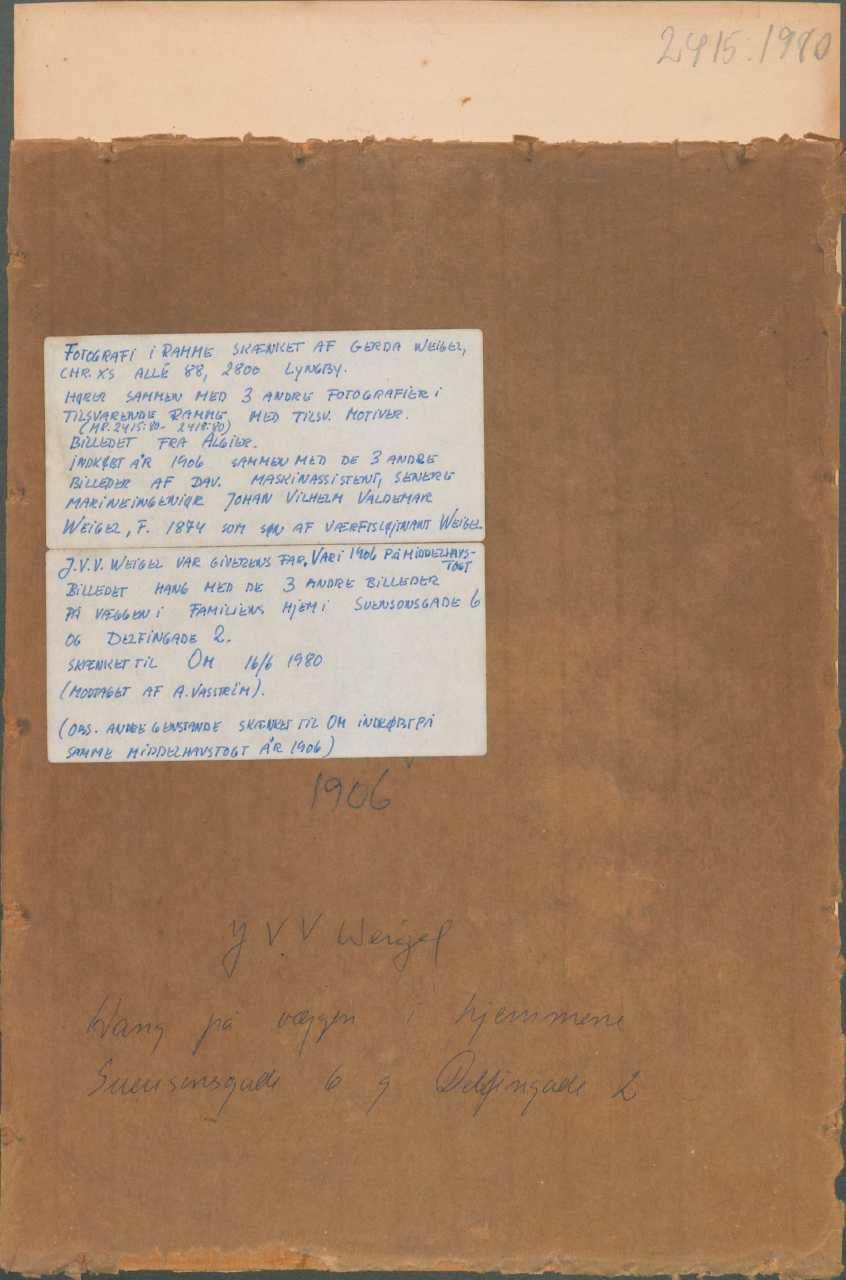 2415:1980
FOTOGRAFI I RAMME SKÆNKET AF GERDA WEIGEL,
CHR. XS ALLÉ 88, 2800 LYNGBY.
HØRER SAMMEN MED 3 ANDRE FOTOGRAFIER I
TILSVARENDE RAMME MED TILSV. MOTIVER.
(NR. 2415:80 - 2418:80)
BILLEDET FRA ALGIER.
INDKØBT ÅR 1906 SAMMEN MED DE 3 ANDRE
BILLEDER AF DAV. MASKINASSISTENT, SENERE
MARINEINGENIØR JOHAN VILHELM VALDEMAR
WEIGEL, F. 1874 SOM SØN AF VÆRFTSLØJTNANT WEIGEL
J.V.V. WEIGEL VAR GIVERENS FAR. VAR I 1906 PÅ MIDDELHAVS-
TOGT
BILLEDET HANG MED DE 3 ANDRE BILLEDER
PÅ VÆGGEN I FAMILIENS HJEM I SUENSONSGADE 6
OG DELFINGADE 2.
SKÆNKET TIL OM 16/6 1980
(MODTAGET AF A. VASSTRÖM).
(OBS. ANDRE GENSTANDE SKÆNKET TIL OM INDKØBT PÅ
SAMME MIDDELHAVSTOGT ÅR 1906)
1906
J V V Weigel
Hang på væggen i hjemmene
Suensonsgade 6 og Delfingade 2